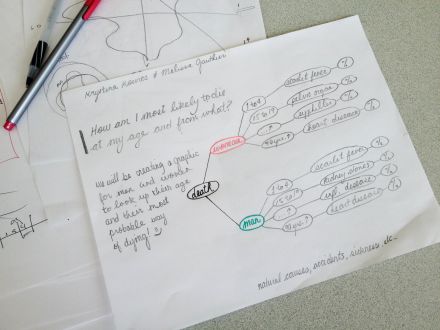 Krystina Kounts & Melissa Gauthier
How am I most likely to die
at my age and from what?
we will be creating a graphic
for men and women
to look up their age
and there most
probable way
of dying!
death
women
1 to 4
scarlet fever
%
15 to 19
pelvis organ
%
syphilis
%
heart disease
%
men
1 to 4
scarlet fever
%
15 to 19
kidney stones
%
infl. disease
%
heart disease
%
natural causes, accidents, sickness etc...